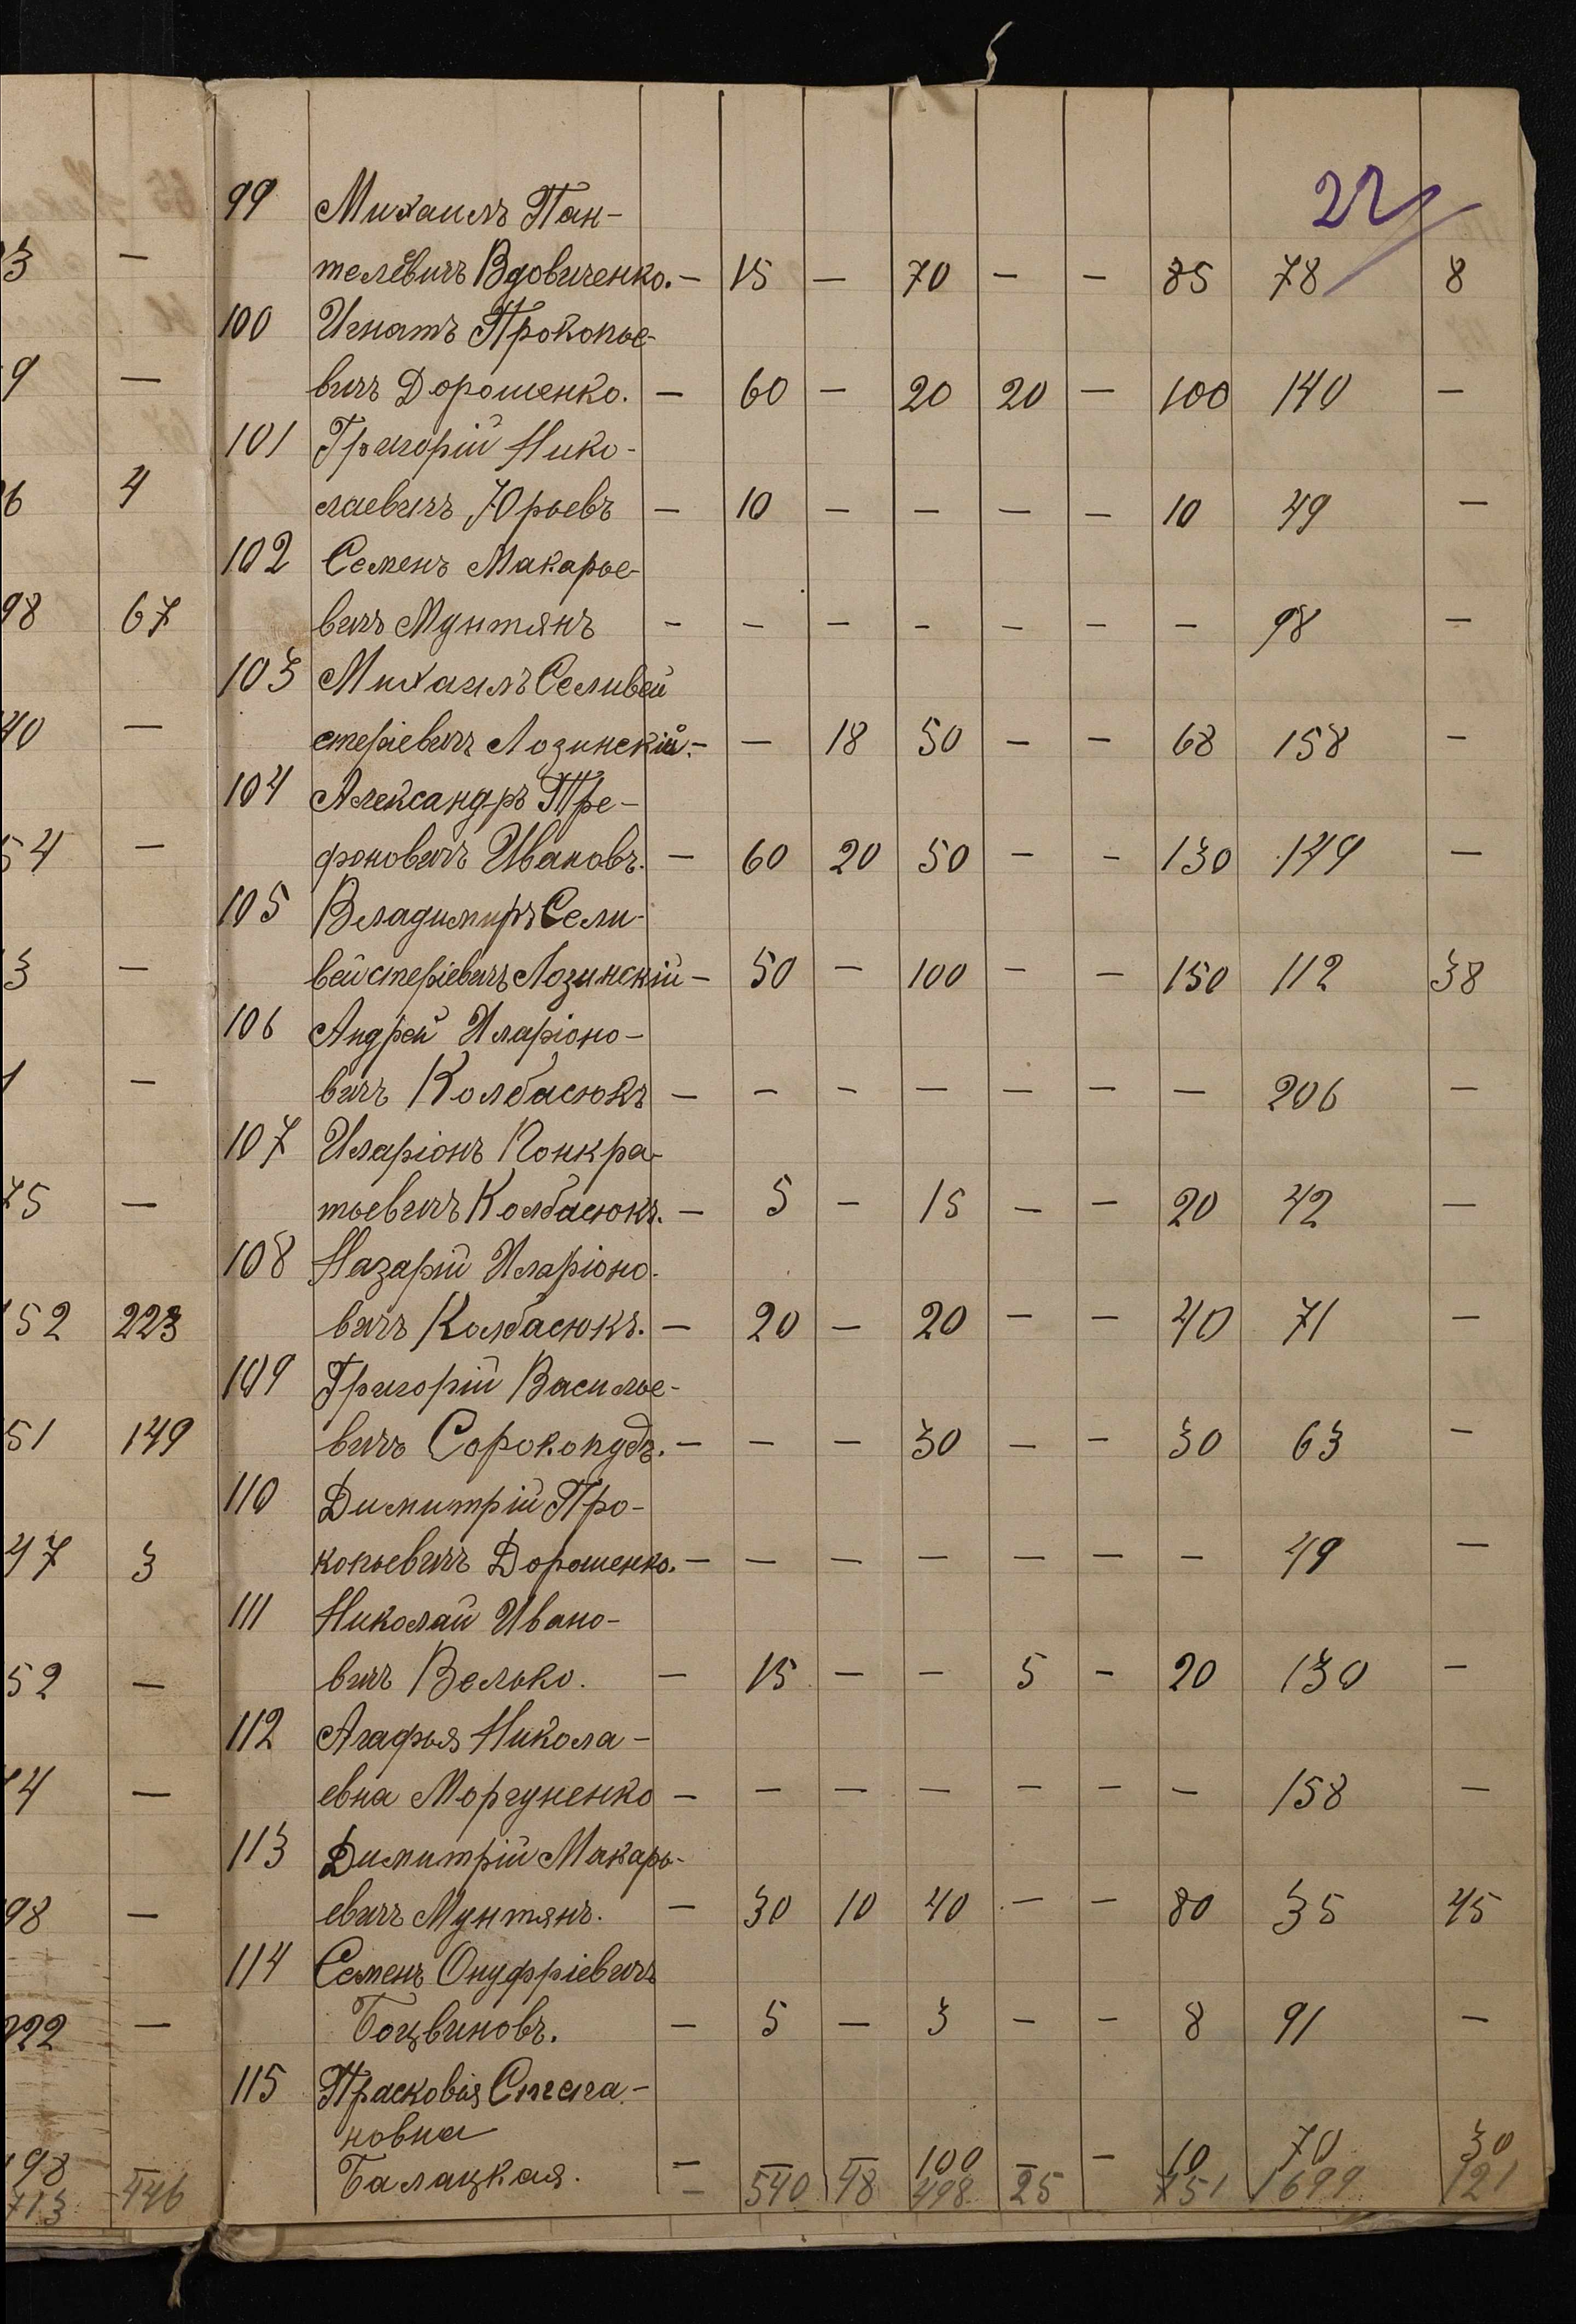 22
99 Михаилъ Пан-
3 — телѣвичъ Вдовиченко. — 15 — 70 — — 85 78 8
100 Игнатъ Прокопье-
9 — вичъ Дорошенко. — 60 — 20 20 — 100 140 —
101 Григорій Нико-
6 4 лаевичъ Юрьевъ — 10 — — — — 10 49 —
102 Семенъ Макарье-
98 67 вичъ Мунтянъ — — — — — — — 98 —
103 Михаилъ Селивей
40 — стеріевичъ Лозинскій. — — 18 50 — — 68 158 —
104 Александръ Тре-
54 — фоновичъ Ивановъ. — 60 20 50 — — 130 149 —
105 Владимиръ Сели-
3 — вейстеріевичъ Лозинскій — 50 — 100 — — 150 112 38
106 Андрей Иларіоно-
1 — вичъ Колбасюкъ — — — — — — — 206 —
107 Иларіонъ Понкра-
75 — тьевичъ Колбасюкъ. — 5 — 15 — — 20 42 —
108 Назарій Иларіоно-
152 223 вичъ Колбасюкъ. — 20 — 20 — — 40 71 —
109 Григорій Василье-
51 149 вичъ Сорокопудъ. — — — 30 — — 30 63 —
110 Димитрій Про-
47 3 копьевичъ Дорошенко. — — — — — — — 49 —
111 Николай Ивано-
52 — вичъ Велько. — 15 — — 5 — 20 130 —
112 Агафья Никола-
74 — евна Моргуненко — — — — — — — 158 —
113 Димитрій Макарь-
98 — евичъ Мунтянъ. — 30 10 40 — — 80 35 45
114 Семенъ Онуфріевичъ
222 — Боцвиновъ. — 5 — 3 — — 8 91 —
115 Прасковія Степа-
новна
198 — Балацкая. — — — 100 — — 10 70 30
713 446 — 540 48 498 25 751 1699 121